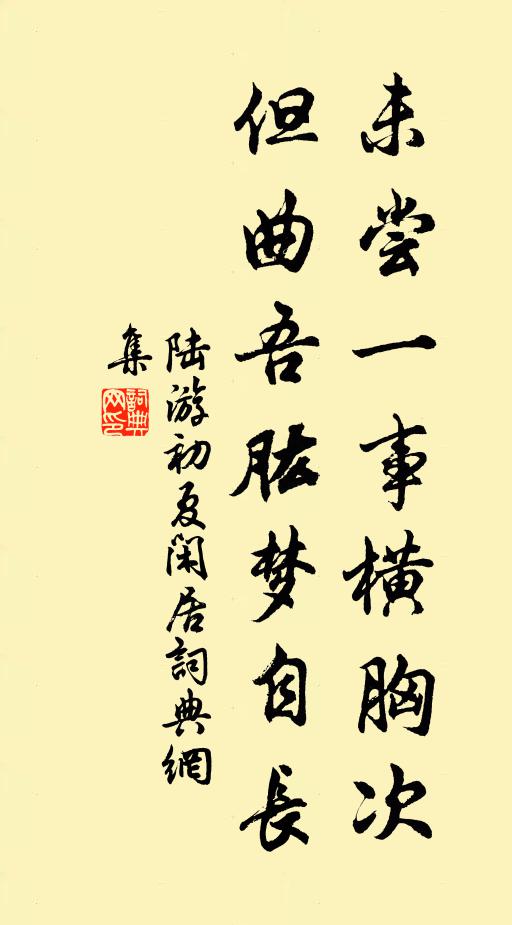 未尝一事横胸次
但曲吾肱梦自長
陆游初夏闲居詞典網
集
詞典
网印